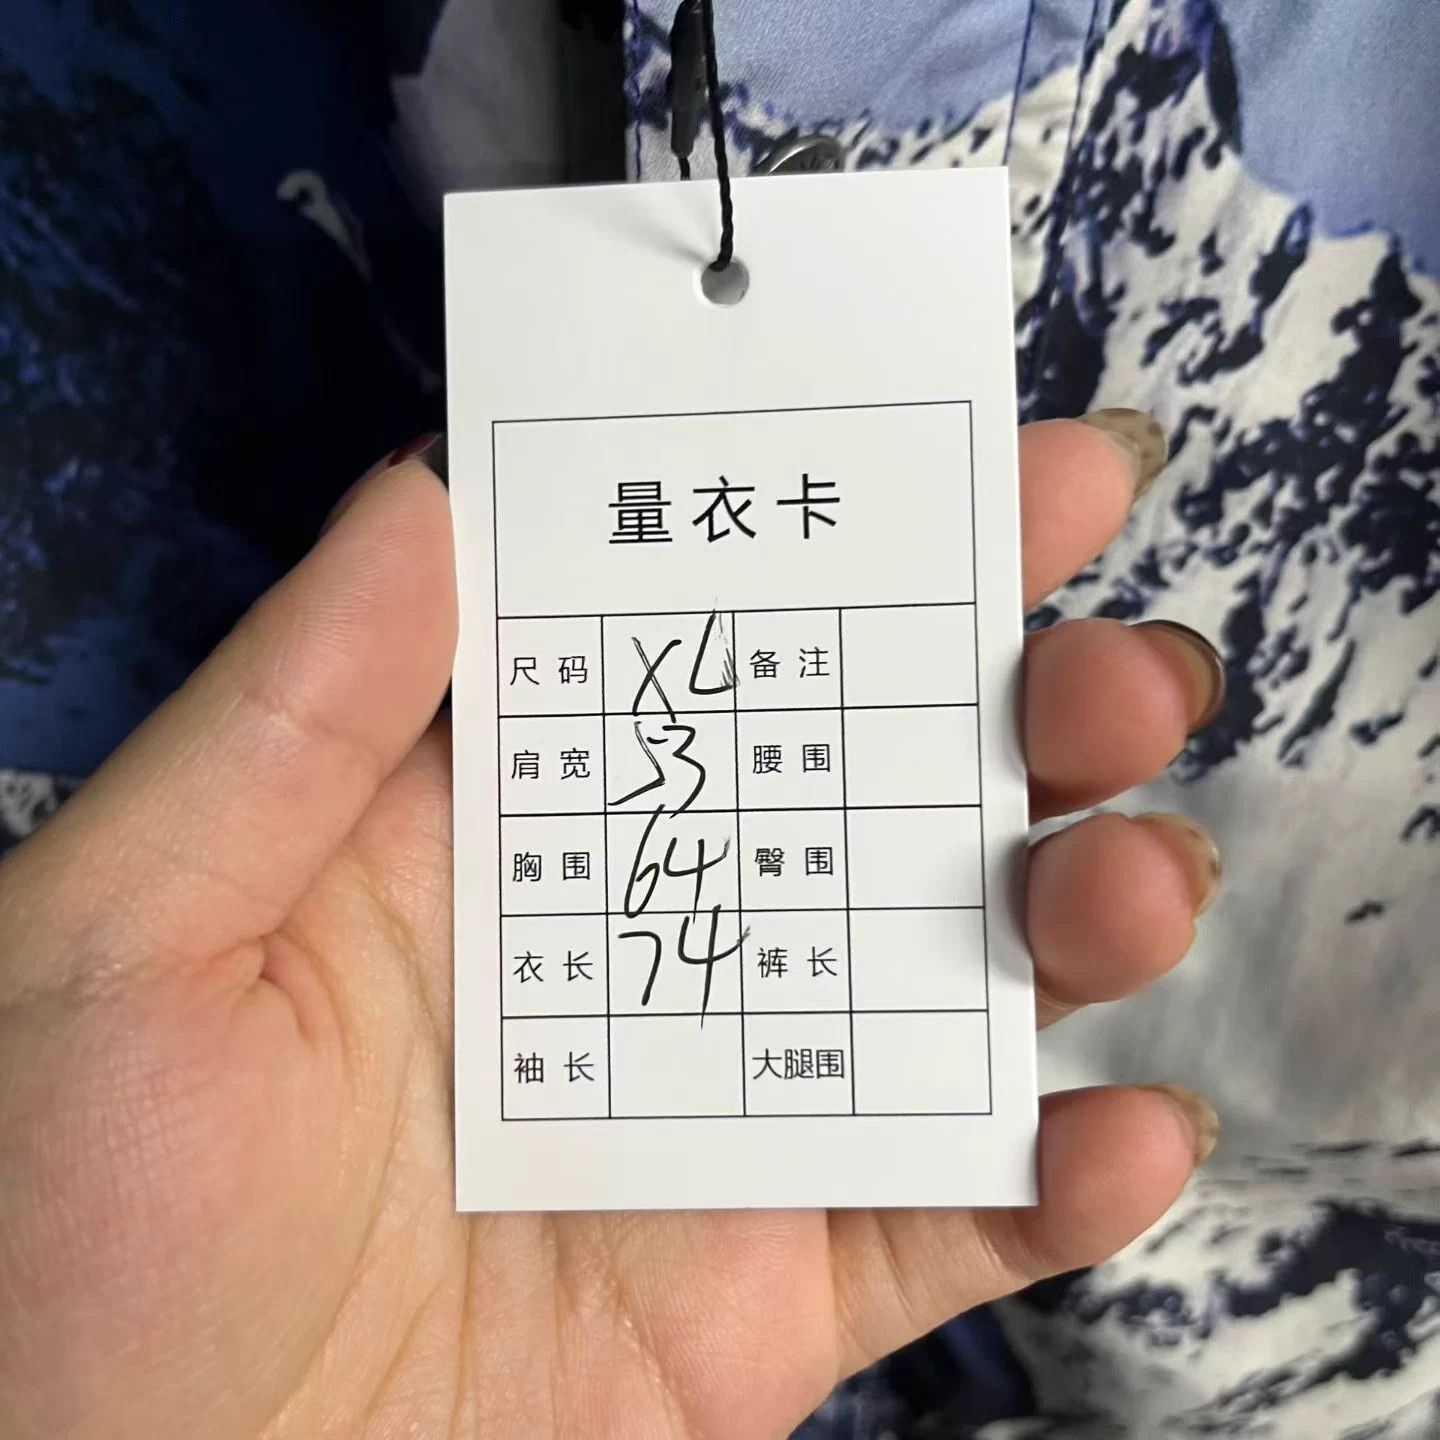 量衣卡
尺码 XL 备注
肩宽 53 腰围
胸围 64 臀围
衣长 74 裤长
袖长 大腿围